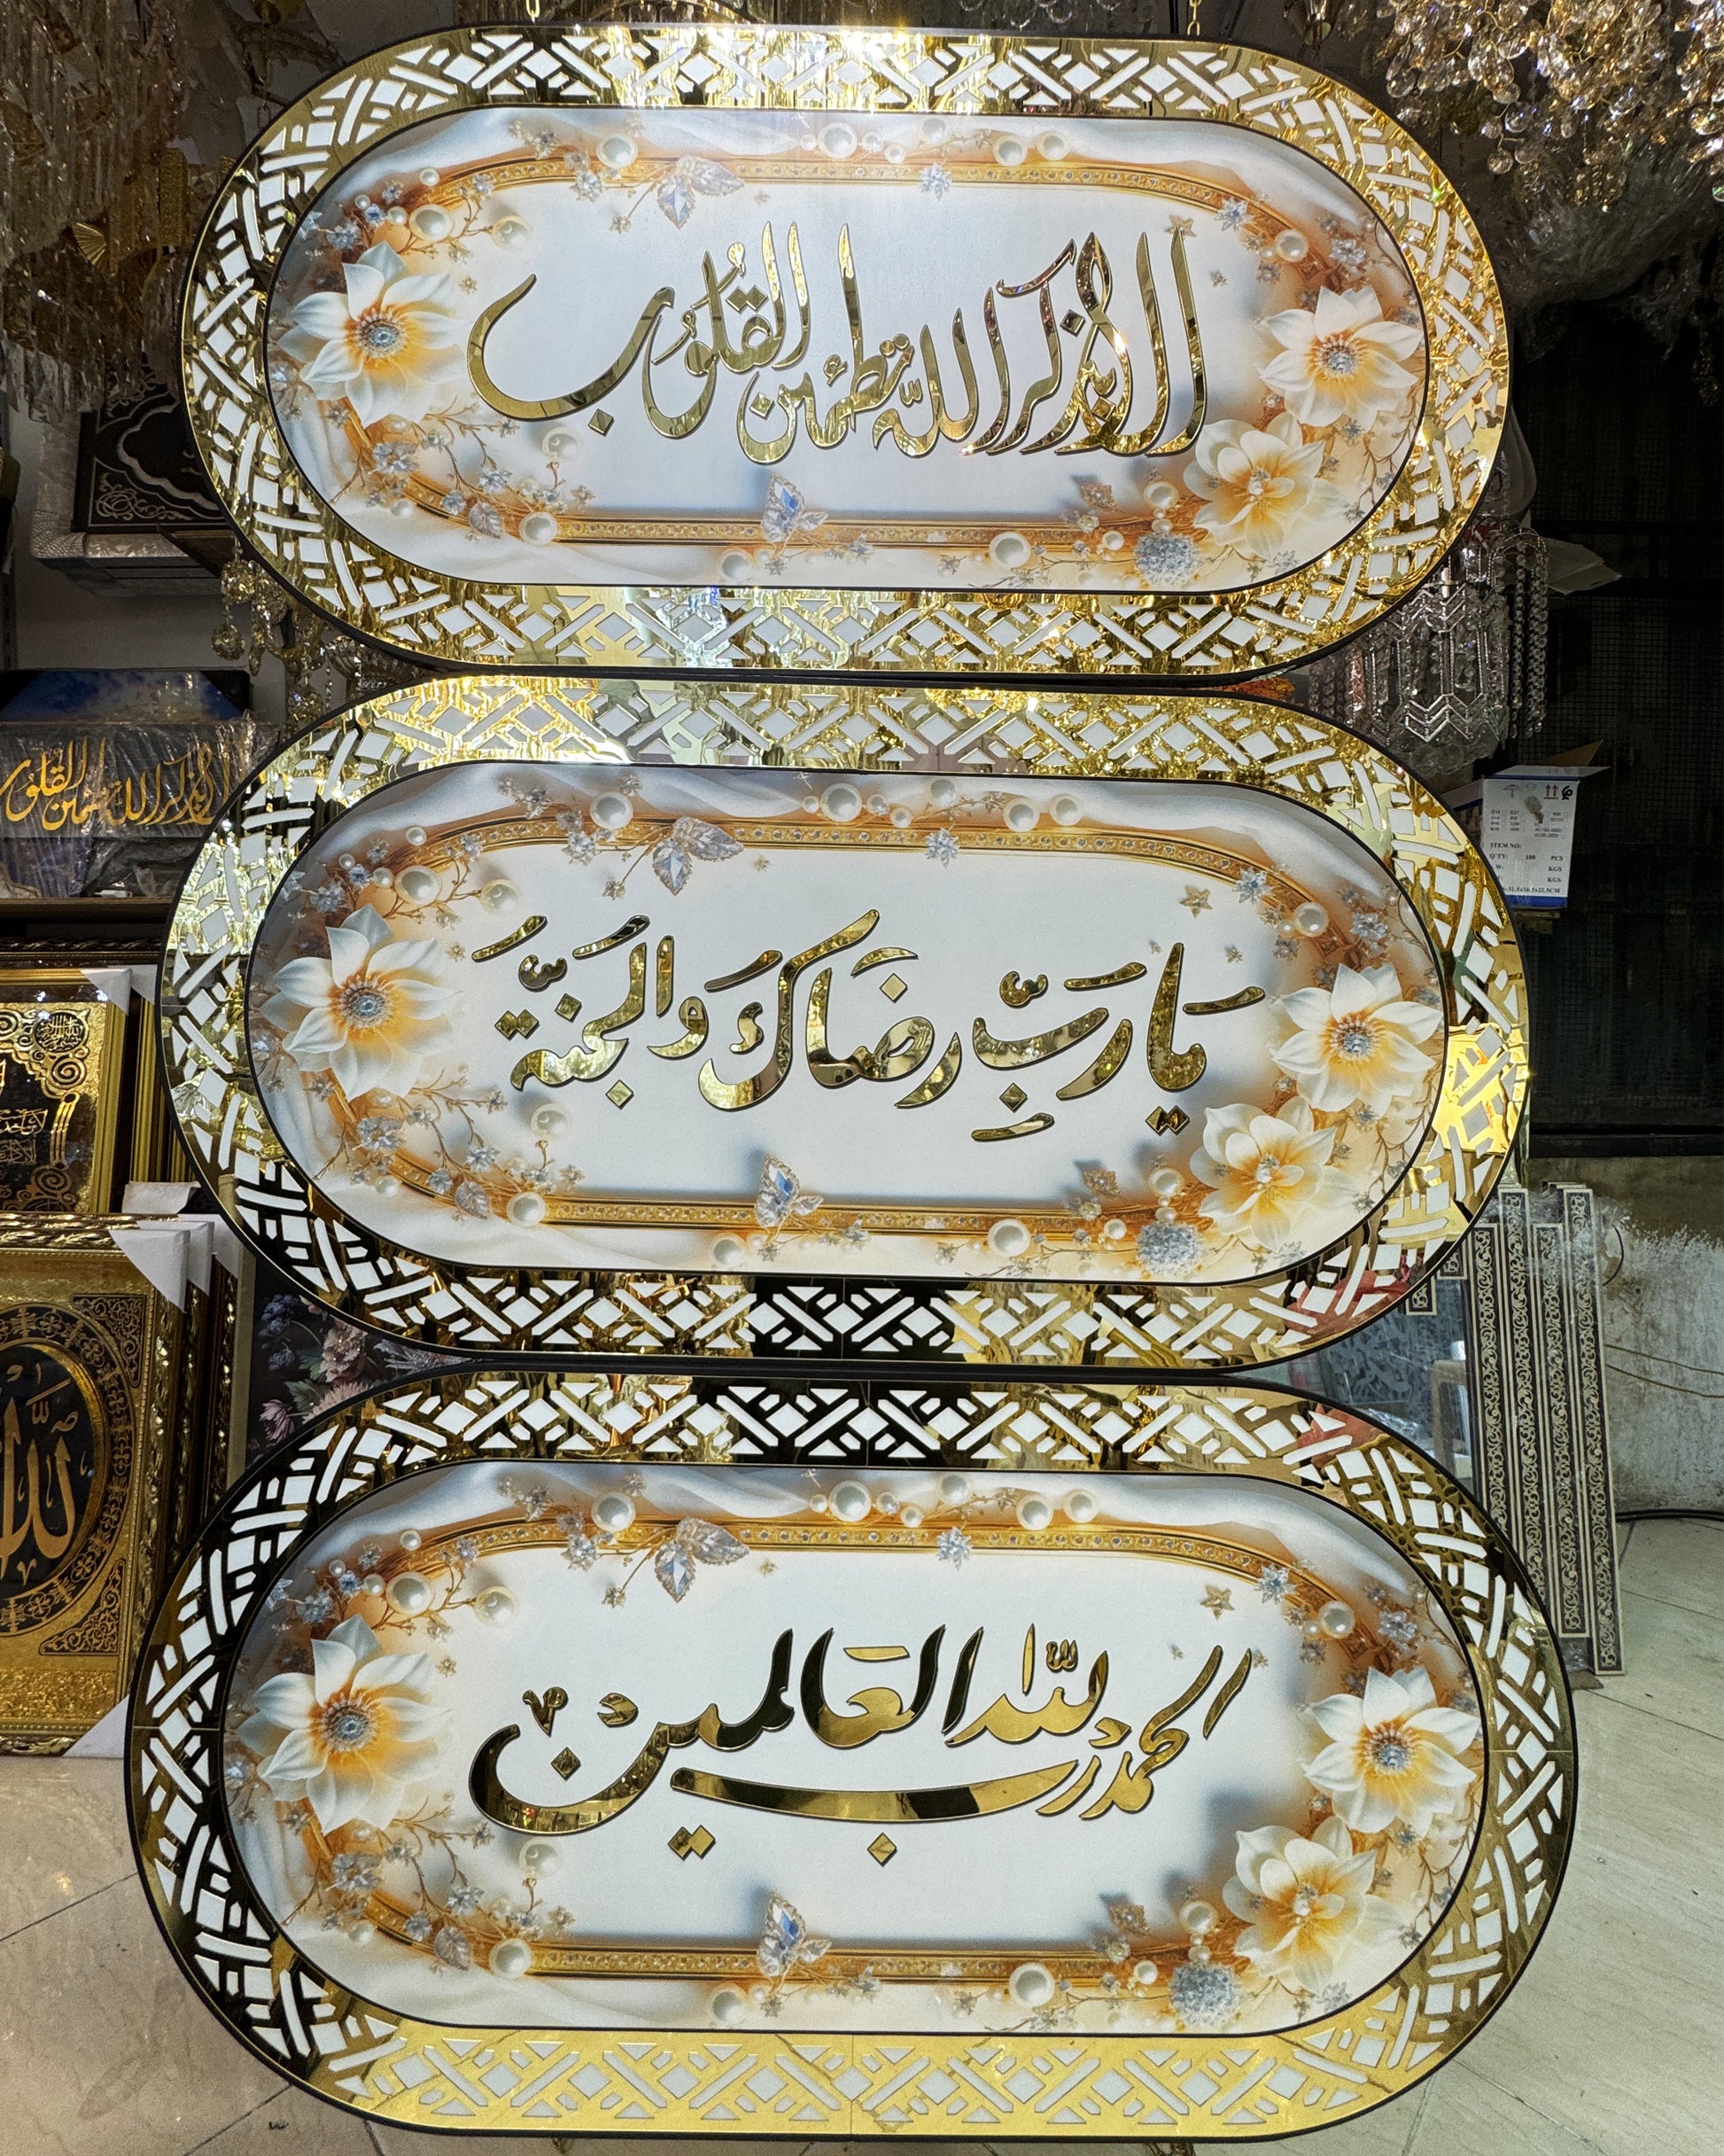 الا بذكر الله تطمئن القلوب
يَا رَبِّ رِضَاكَ وَالجَنَّةَ
الحمد لله رب العَالمين
الا بذكر الله تطمئن القلو
ITEM NO:
Q'TY: 100 PCS
KGS
KGS
الله